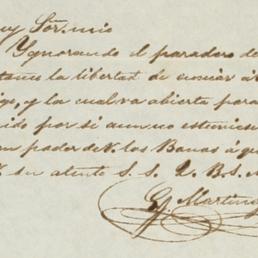 uy Sor. mio
Ygnorando el paradero de
tomo la libertad de enviar á
go, y la cual va abierta para
ido por si aun no estuviese
en poder de V. los Banas á qu
su atento S. S. Q. B. S. M
G. Martin